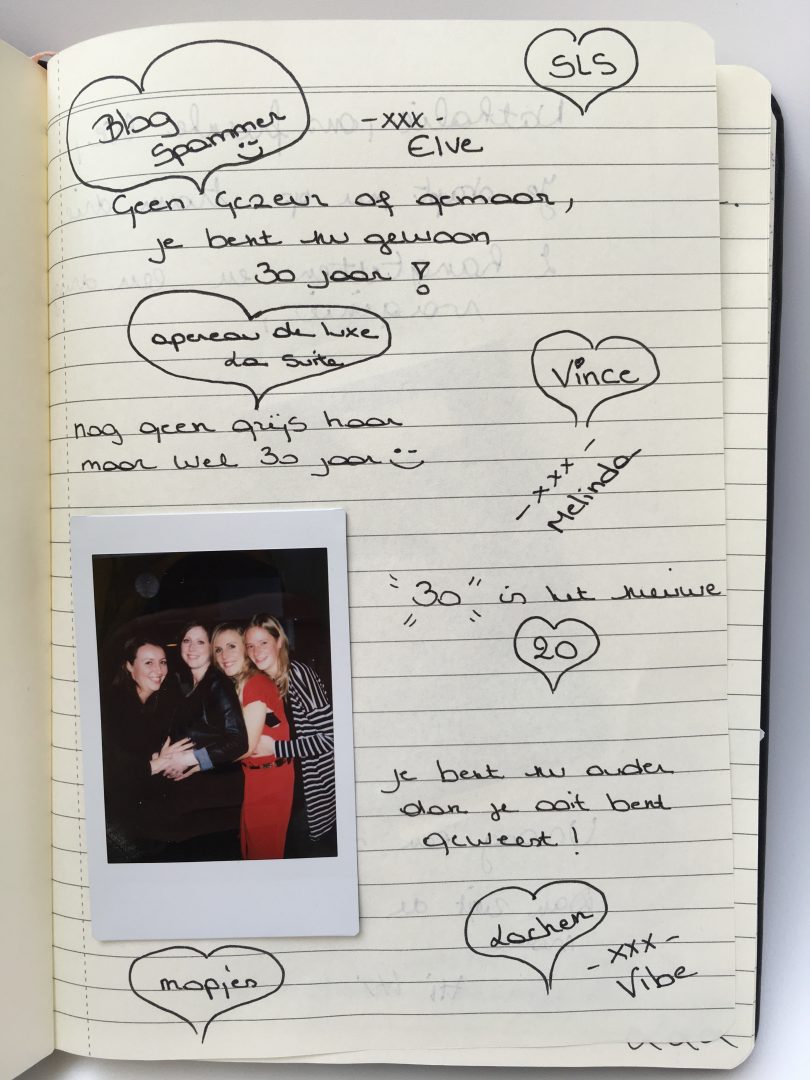 SLS
Blog
Spammer
-xxx-
Elve
Geen Gezeur of gemaar,
je bent nu gewoon
30 jaar!
apereau de luxe
da suite
Vince
nog geen grijs haar
maar wel 30 jaar
-xxx-
Melinda
"30" is het nieuwe
20
je bent nu ouder
dan je ooit bent
geweest!
Lachen
-xxx-
Vibe
mopjes